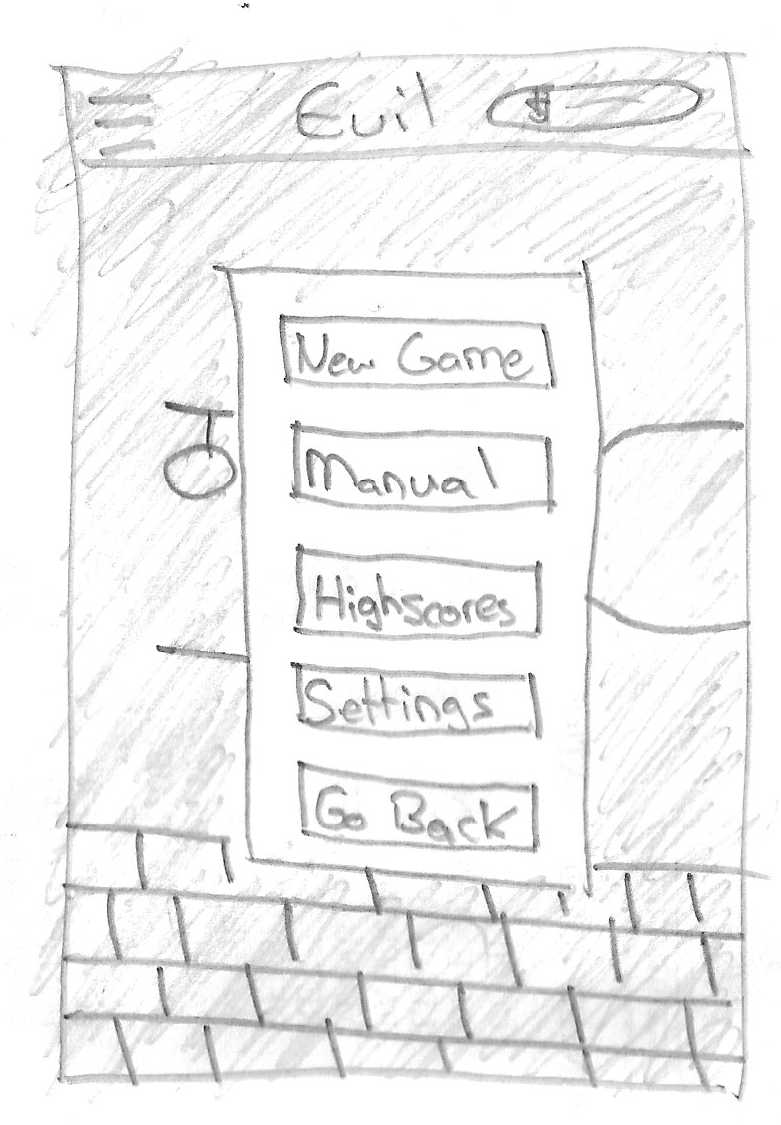 Evil
New Game
Manual
Highscores
Settings
Go Back